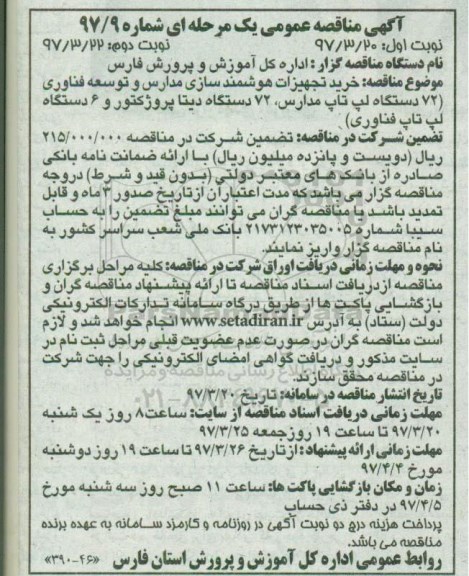 آگهی مناقصه عمومی یک مرحله ای شماره ۹۷/۹
نوبت اول: ۹۷/۳/۲۰ نوبت دوم: ۹۷/۳/۲۲
نام دستگاه مناقصه گزار : اداره کل آموزش و پرورش فارس
موضوع مناقصه: خرید تجهیزات هوشمند سازی مدارس و توسعه فناوری
(۷۲ دستگاه لپ تاپ مدارس، ۷۲ دستگاه دیتا پروژکتور و ۶ دستگاه
لپ تاپ فناوری)
تضمین شرکت در مناقصه: تضمین شرکت در مناقصه ۲۱۵/۰۰۰/۰۰۰
ریال (دویست و پانزده میلیون ریال) با ارائه ضمانت نامه بانکی
صادره از بانک‌های معتبر دولتی (بدون قید و شرط) دروجه
مناقصه گزار می باشد که مدت اعتبار آن ازتاریخ صدور ۳ ماه و قابل
تمدید باشد یا مناقصه گران می توانند مبلغ تضمین را به حساب
سیبا شماره ۲۱۷۳۱۲۳۰۳۵۰۰۵ بانک ملی شعب سراسر کشور به
نام مناقصه گزار واریز نمایند.
نحوه و مهلت زمانی دریافت اوراق شرکت در مناقصه: کلیه مراحل برگزاری
مناقصه از دریافت اسناد مناقصه تا ارائه پیشنهاد مناقصه گران و
بازگشایی پاکت ها از طریق درگاه سامانه تدارکات الکترونیکی
دولت (ستاد) به آدرس www.setadiran.ir انجام خواهد شد و لازم
است مناقصه گران در صورت عدم عضویت قبلی مراحل ثبت نام در
سایت مذکور و دریافت گواهی امضای الکترونیکی را جهت شرکت
در مناقصه محقق سازند.
تاریخ انتشار مناقصه در سامانه: تاریخ ۹۷/۳/۲۰
مهلت زمانی دریافت اسناد مناقصه از سایت: ساعت ۸ روز یک شنبه
۹۷/۳/۲۰ تا ساعت ۱۹ روز جمعه ۹۷/۳/۲۵
مهلت زمانی ارائه پیشنهاد: از تاریخ ۹۷/۳/۲۶ تا ساعت ۱۹ روز دوشنبه
مورخ ۹۷/۴/۴
زمان و مکان بازگشایی پاکت ها: ساعت ۱۱ صبح روز سه شنبه مورخ
۹۷/۴/۵ در دفتر ذی حساب
پرداخت هزینه درج دو نوبت آگهی در روزنامه و کارمزد سامانه به عهده برنده
مناقصه می باشد.
روابط عمومی اداره کل آموزش و پرورش استان فارس «۳۹۰-۴۶»